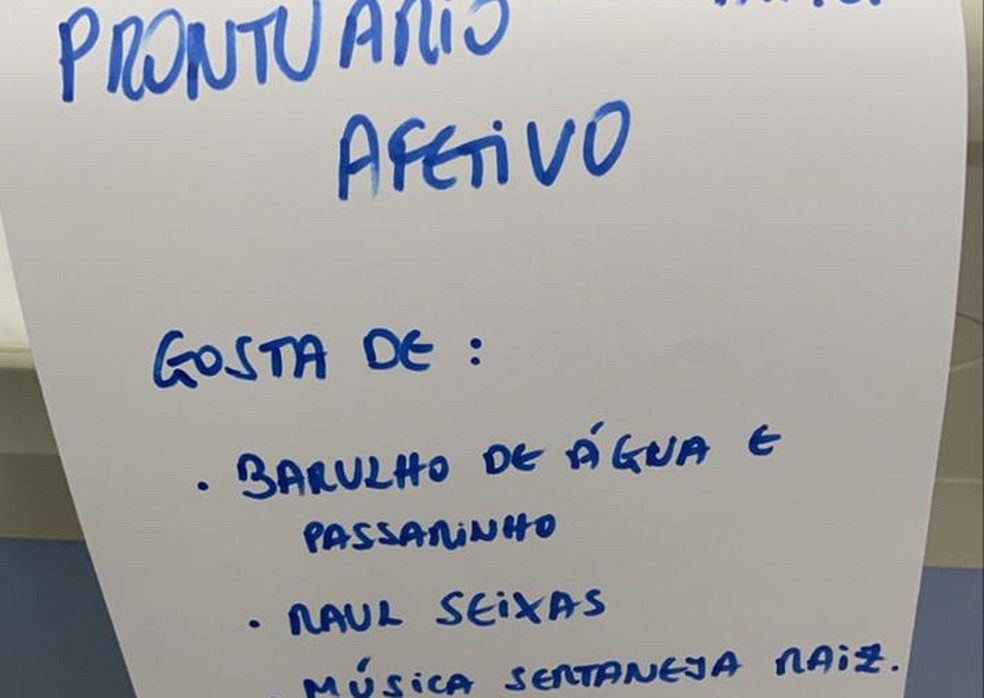 PRONTUÁRIO
AFETIVO
GOSTA DE :
. BARULHO DE ÁGUA E
PASSARINHO
. RAUL SEIXAS
. MÚSICA SERTANEJA RAIZ.